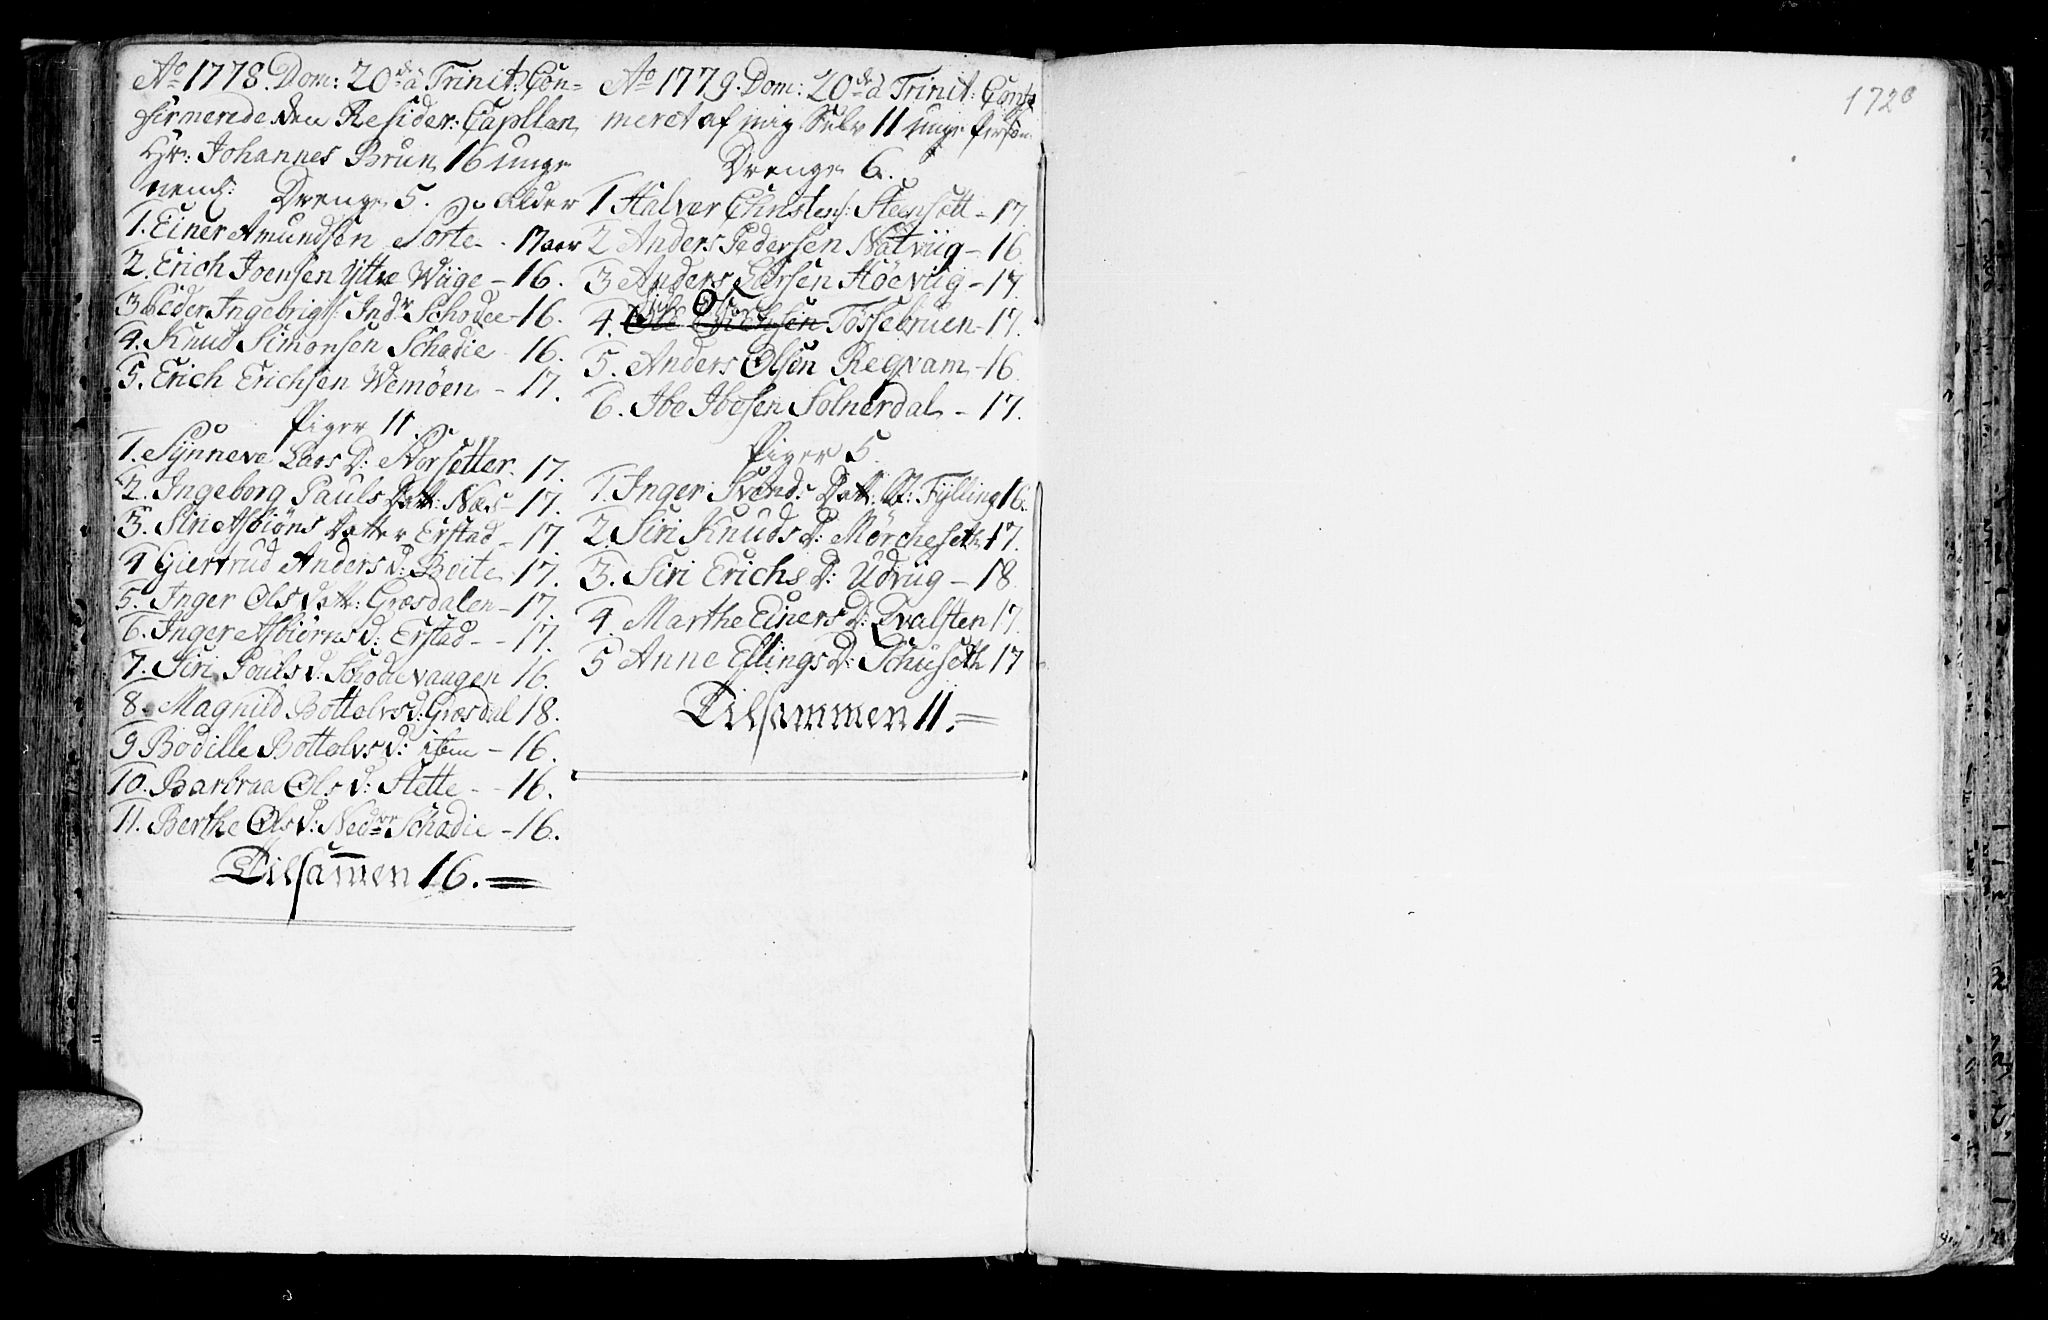 Ao 1778. Dom: 20de à Trinit: Con-
firmerede den Resider: Capellan
Hr: Johannes Brun 16 unge
neml: Drenge 5. Alder
1. Einer Amundsen Sorte - 17 aar
2. Erich Joensen Yttre Wiige - 16.
3 Peder Ingebrigts: Indr Schodie - 16.
4. Knud Simonsen Schodie - 16.
5. Erich Erichsen Wemöen - 17.
Piger 11
1. Synneve Lars D: Norsetter. 17.
2. Ingeborg Pauls Datt: Næs - 17.
3. Siri Asbiöns Datter Erstad - 17
4 Giertrud Anders d: Boite - 17.
5. Inger Ols datt: Græsdalen - 17.
6. Inger Asbiörns d: Erstad - - 17.
7. Siri Pouls d: Schodievaagen 16.
8. Magnild Bottolvs d: Græsdal 18.
9 Bodille Bottolvs d: ibm - 16.
10. Barbraa Ols d: Stette - - 16.
11. Berthe Ols d: Nedre Schodie - 16.
Tilsammen 16.
Ao 1779. Dom: 20de à Trinit: Confir
meret af mig Selv 11 unge Person
Drenge 6.
1 Halver Christens: Steensett - 17.
2 Anders Pedersen Natviig - 16.
3 Anders Larsen Höeviig - 17.
4. Tössebruen - 17.
5. Anders Olsen Regvam - 16
6. Ibe Ibesen Solnerdal - 17.
Piger 5.
1. Inger Svends Datt: Fylling 16.
2. Siri Knuds D: Mörcheseth 17.
3. Siri Erichs D: Udviig - 18
4. Marthe Einers D: Qvalsten 17.
5 Anne Ellings D: Schuseth 17
Tilsammen 11.